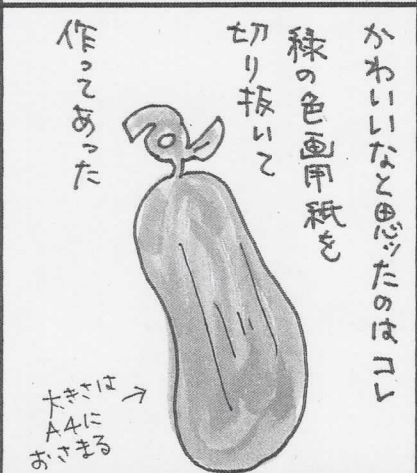 かわいいなと思ったのはコレ
緑の色画用紙を
切り抜いて
作ってあった
大きさは
A4に
おさまる